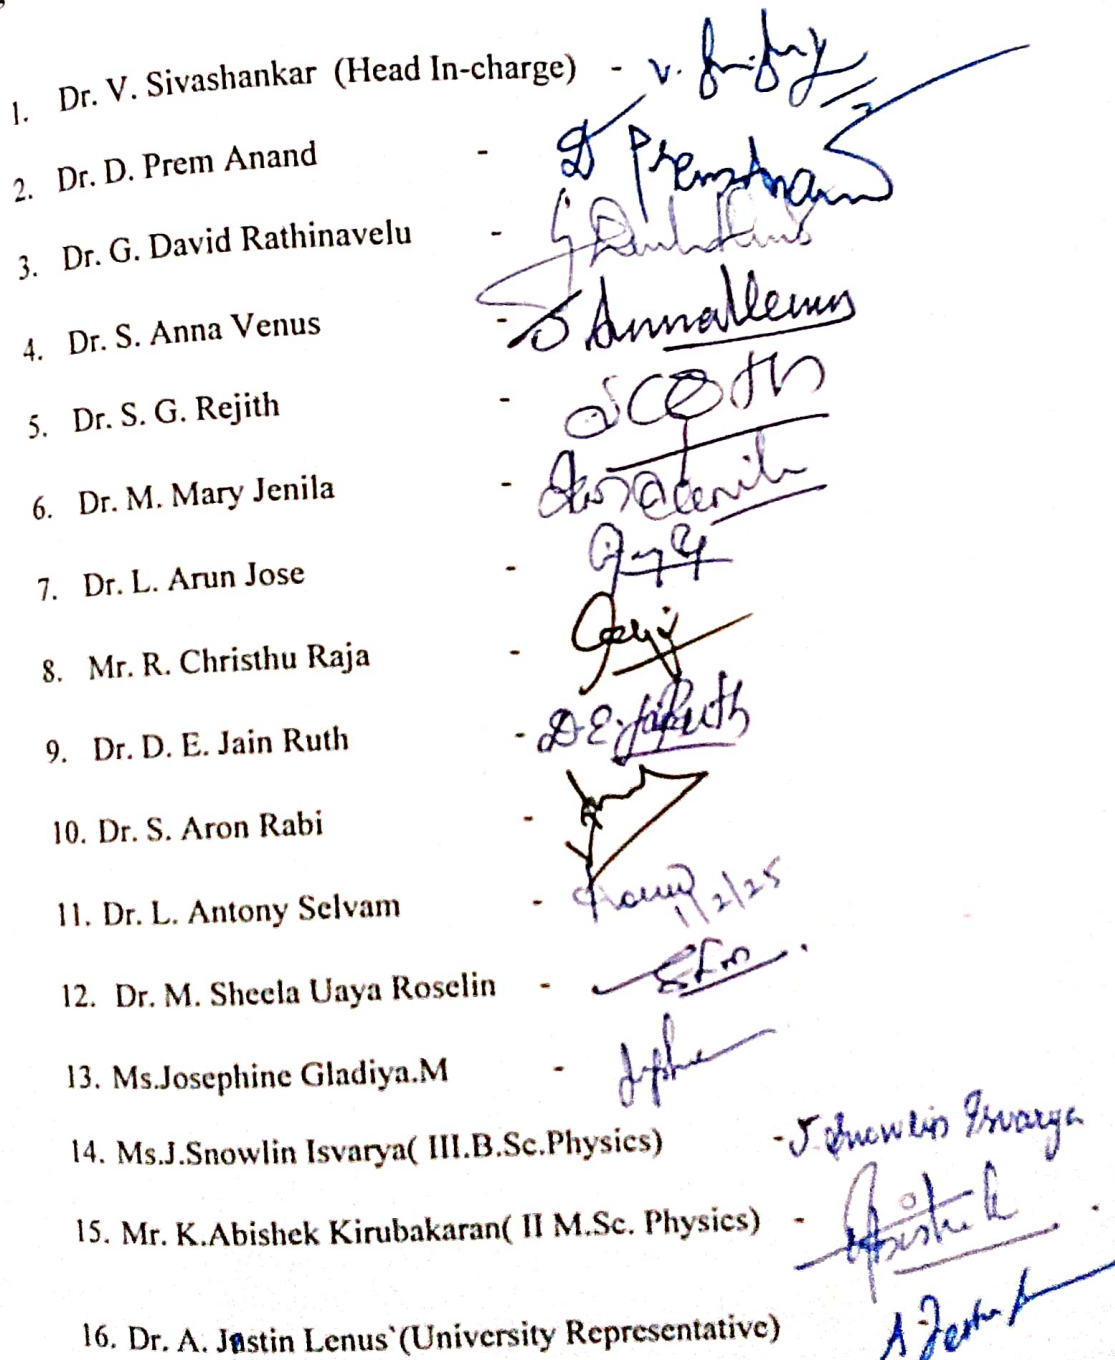 1. Dr. V. Sivashankar (Head In-charge) - V.
2. Dr. D. Prem Anand - D Prem Anand
3. Dr. G. David Rathinavelu - G
4. Dr. S. Anna Venus - S Anna Venus
5. Dr. S. G. Rejith -
6. Dr. M. Mary Jenila -
7. Dr. L. Arun Jose -
8. Mr. R. Christhu Raja -
9. Dr. D. E. Jain Ruth - D.E. Ruth
10. Dr. S. Aron Rabi -
11. Dr. L. Antony Selvam - 1/2/25
12. Dr. M. Sheela Uaya Roselin -
13. Ms.Josephine Gladiya.M -
14. Ms.J.Snowlin Isvarya( III.B.Sc.Physics) - J. Snowlin Isvarya
15. Mr. K.Abishek Kirubakaran( II M.Sc. Physics) -
16. Dr. A. Jastin Lenus`(University Representative)